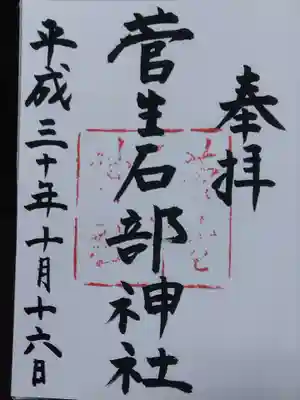 奉拝
菅生石部神社
平成三十年十月十六日